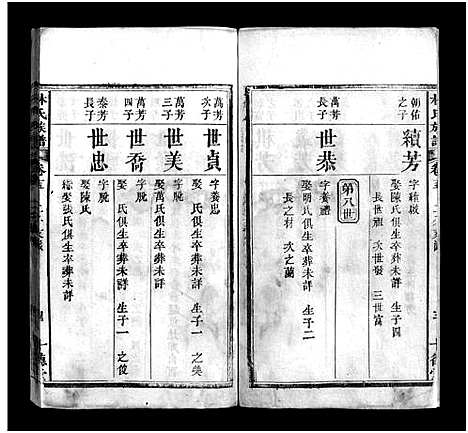 林氏族譜
朝佑之子
續芳
娶陳氏俱生卒葬未詳 生子四
長世祖 次世發 三世富
第八世
萬芳長子
世恭
字養
娶明氏俱生卒葬未詳 生子二
長之材 次之蘭
萬芳次子
世貞
字養忠
娶 氏俱生卒葬未詳 生子一 之美
萬芳三子
世美
字脫
娶萬氏俱生卒葬未詳
萬芳四子
世喬
字脫
娶 氏俱生卒葬未詳 生子一 之俊
秦芳長子
世忠
娶陳氏
娶張氏俱生卒葬未詳
林氏族譜